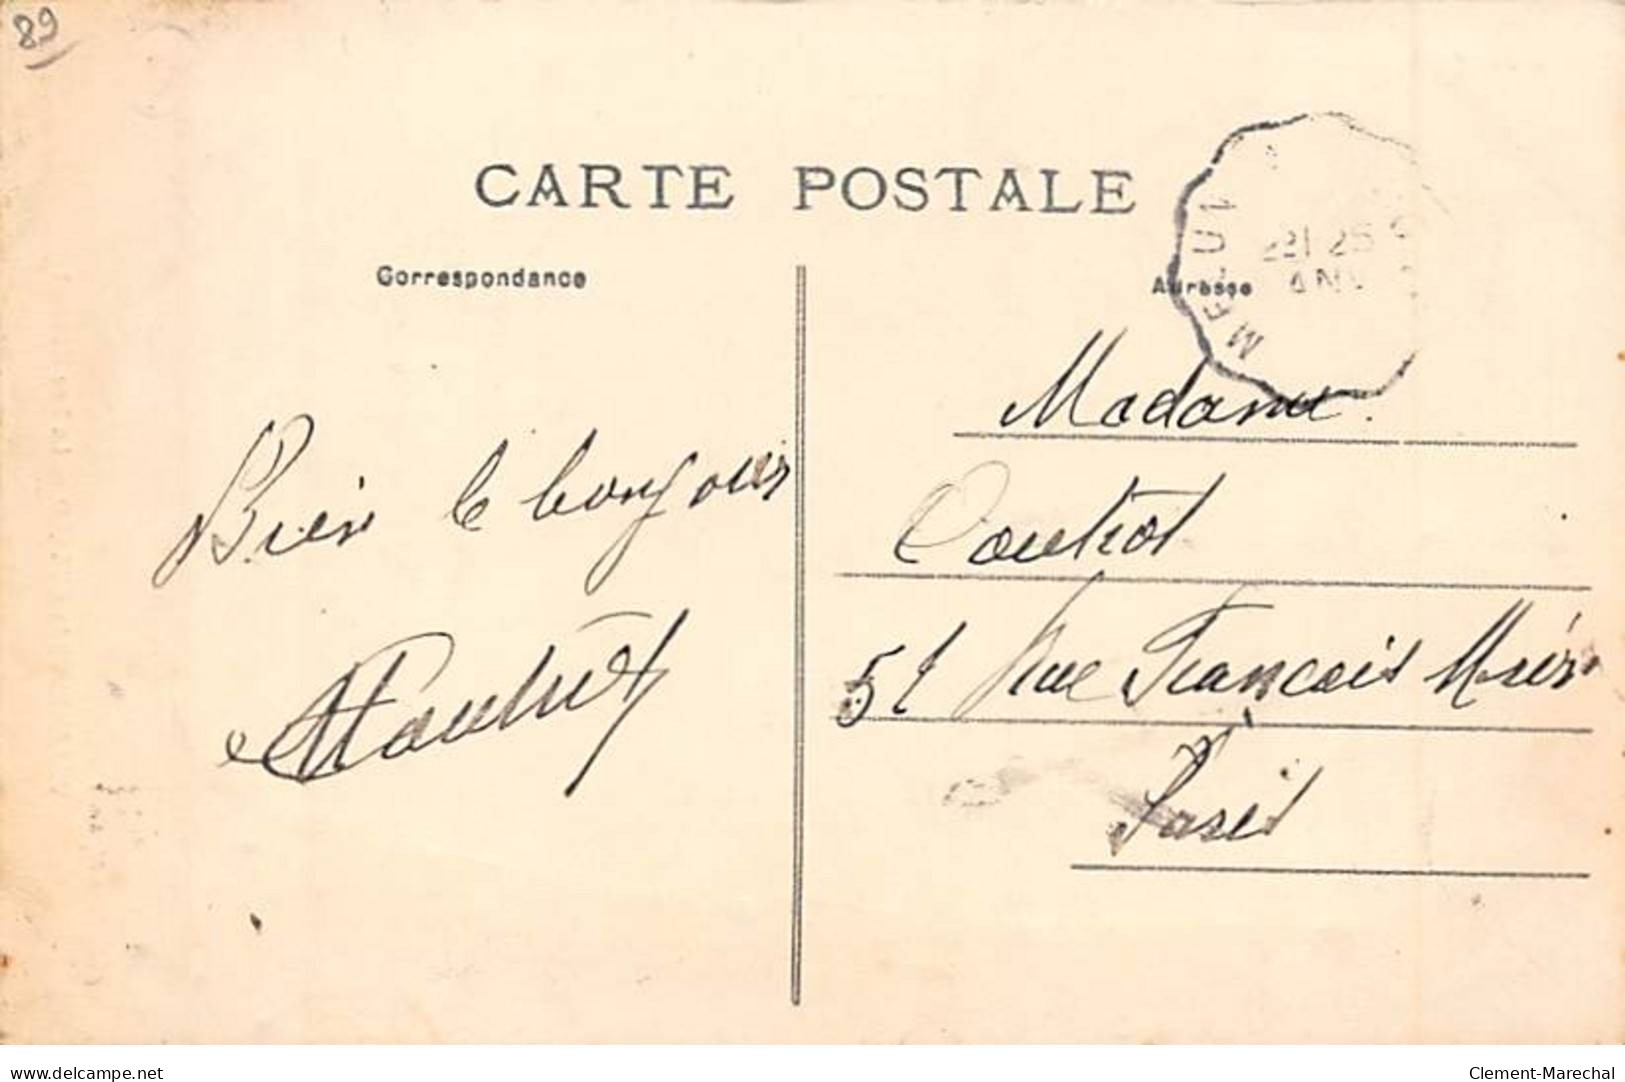 89
CARTE POSTALE
Correspondance
Adresse
Bien le bonjour
Madame
Coutrot
51 Rue François Miron
Paris
www.delcampe.net
Clement-Marechal